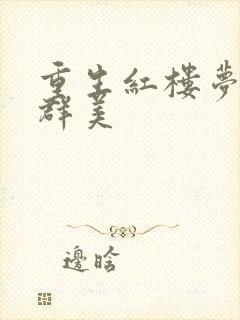 重生紅樓夢
群美
邊晗